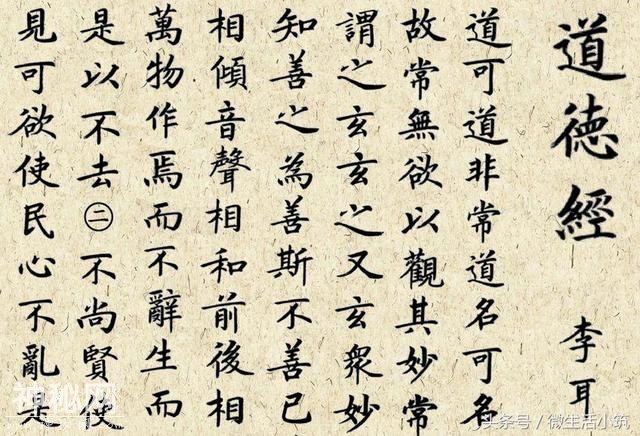 道德經
李耳
道可道非常道名可名
故常無欲以觀其妙常
謂之玄玄之又玄衆妙
知善之為善斯不善已
相傾音聲相和前後相
萬物作焉而不辭生而
是以不去㊁不尚賢使
見可欲使民心不亂是
神秘网
头条号 / 微生活小筑